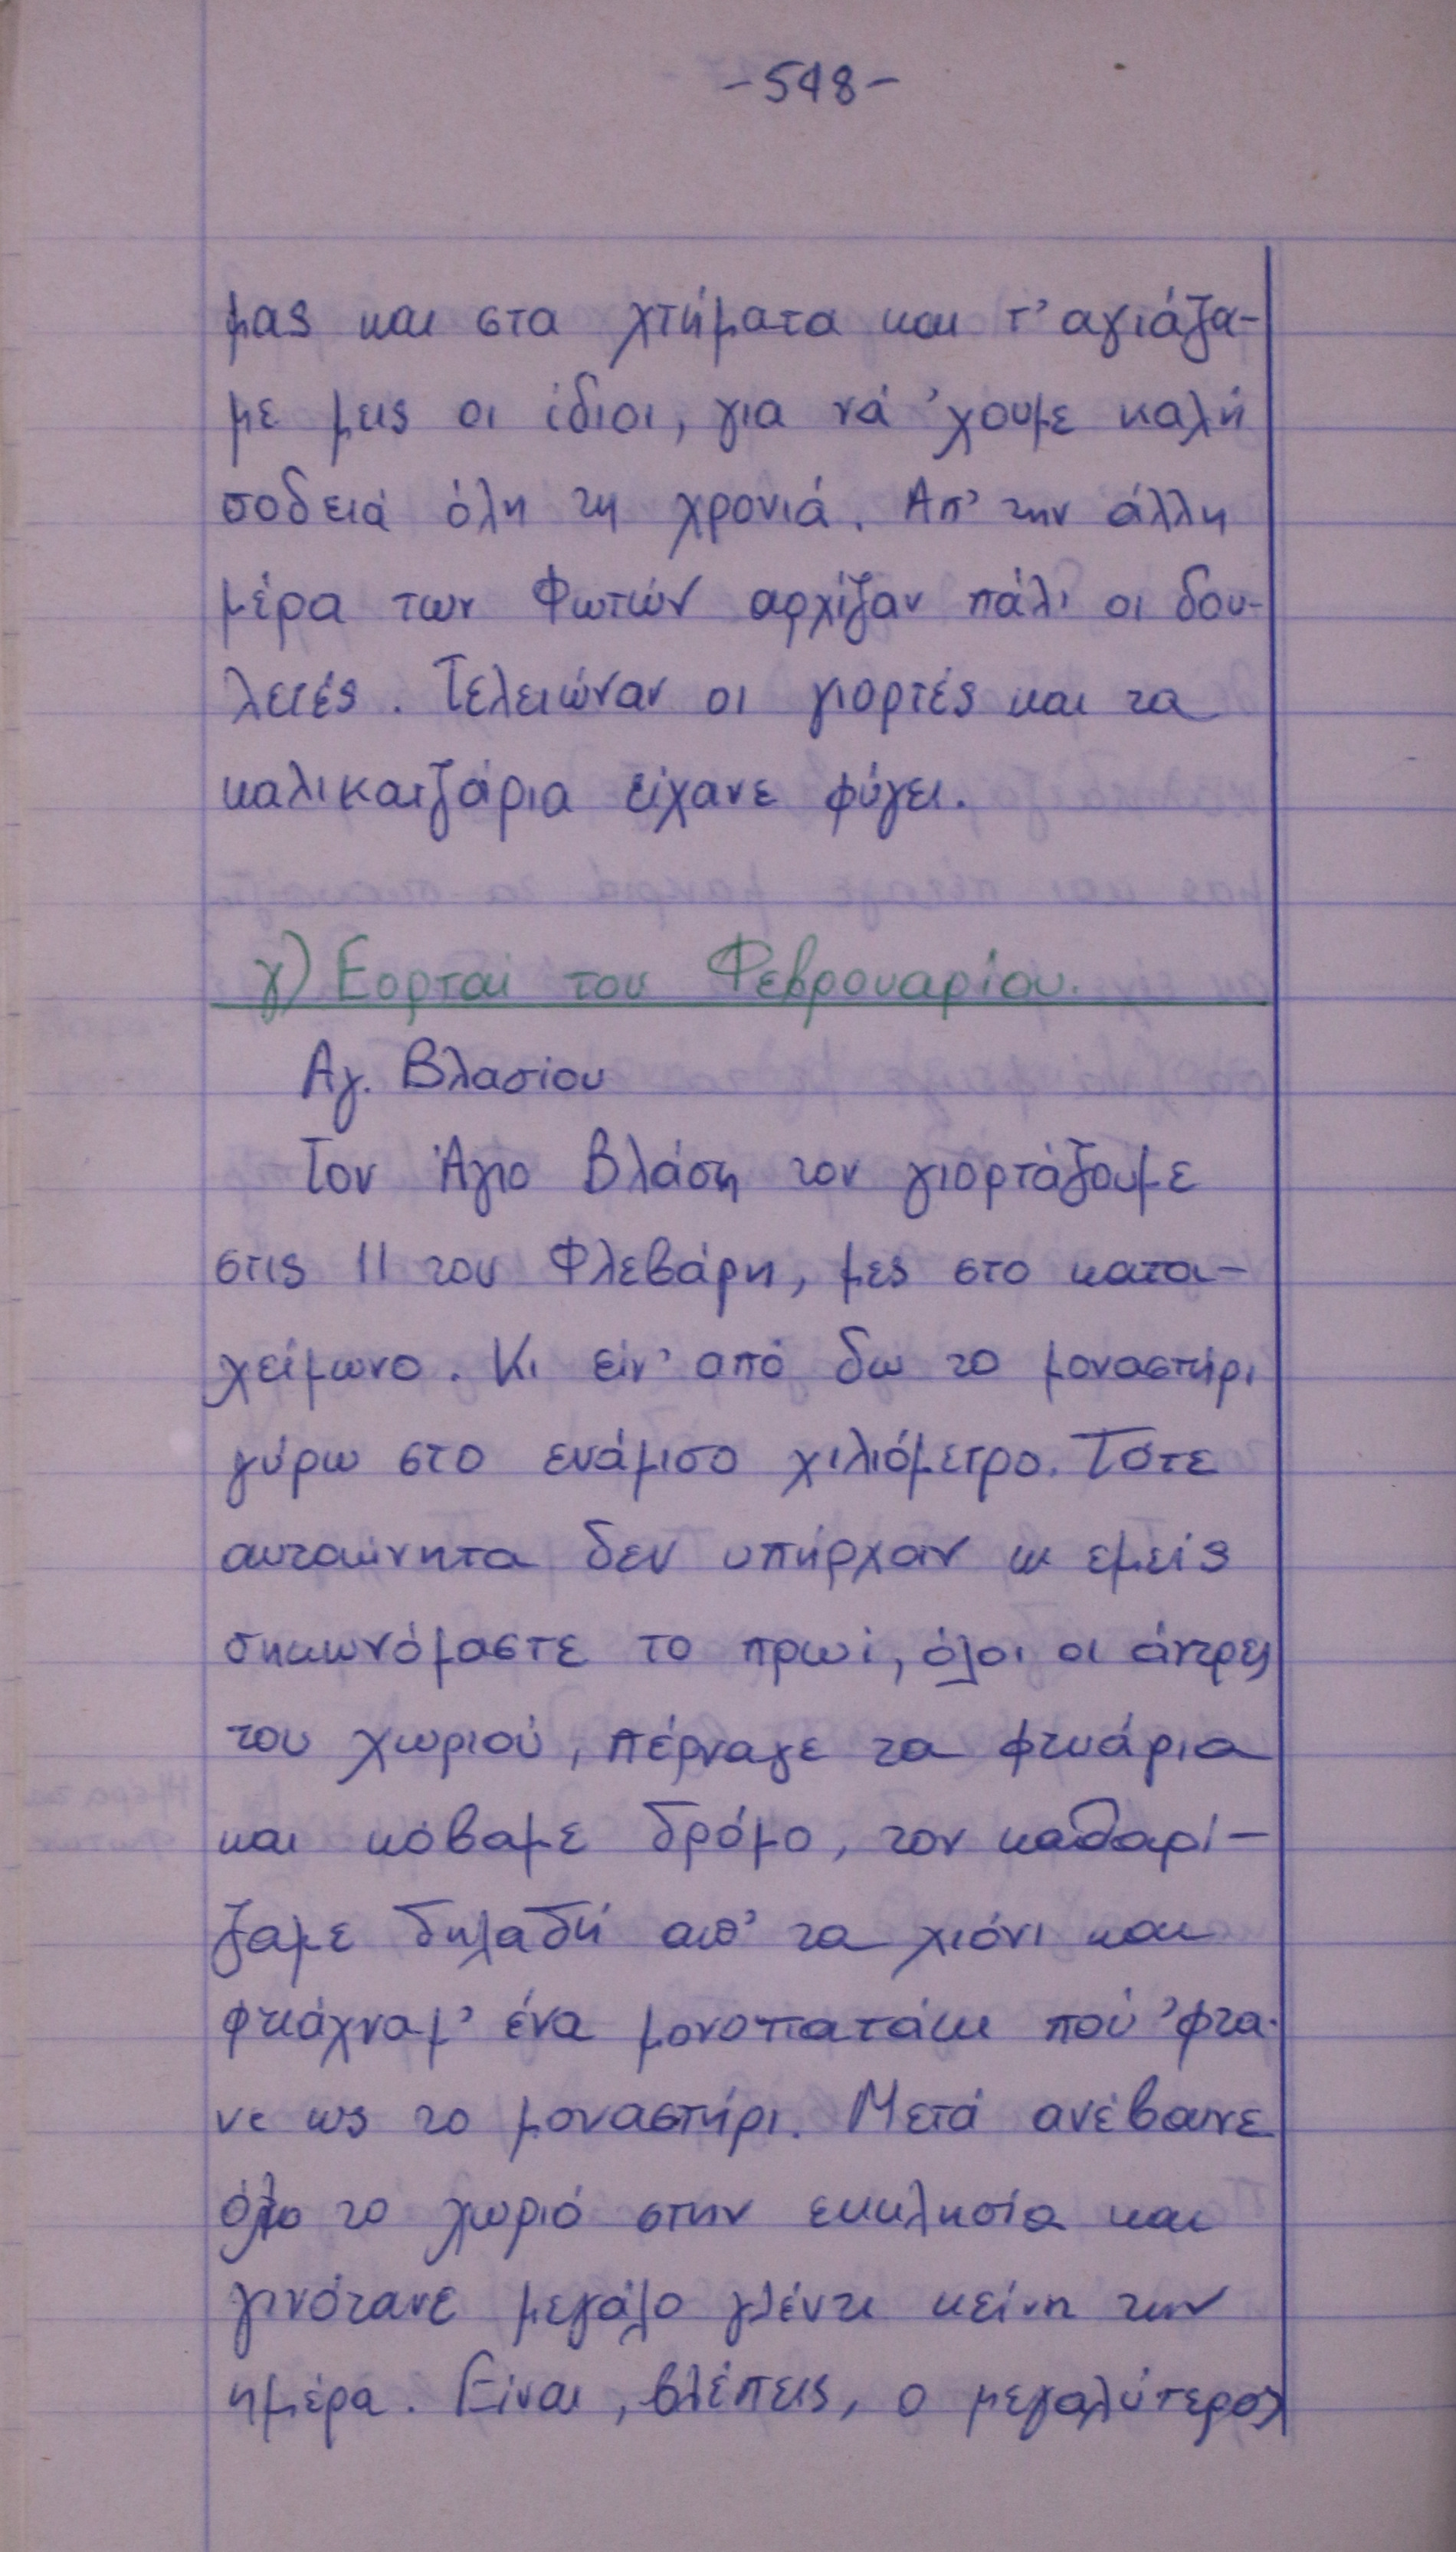 -548-
μας και στα χτήματα και τ' αγιάζα-
με μεις οι ίδιοι, για νά 'χουμε καλή
σοδειά όλη τη χρονιά. Απ' την άλλη
μέρα των Φωτών αρχίζαν πάλι οι δου-
λειές. Τελειώναν οι γιορτές και τα
καλικατζάρια είχανε φύγει.
γ) Εορταί του Φεβρουαρίου.
Αγ. Βλασίου
Τον Άγιο Βλάση τον γιορτάζουμε
στις 11 του Φλεβάρη, μες στο κατα-
χείμωνο. Κι είν' από δω το μοναστήρι
γύρω στο ενάμισο χιλιόμετρο. Τότε
αυτοκίνητα δεν υπήρχαν κι εμείς
σηκωνόμαστε το πρωί, όλοι οι άντρες
του χωριού, πέρναγε τα φτυάρια
και κόβαμε δρόμο, τον καθαρί-
ζαμε δηλαδή απ' τα χιόνι και
φτιάχναμ' ένα μονοπατάκι πού 'φτα-
νε ως το μοναστήρι. Μετά ανέβαινε
όλο το χωριό στην εκκλησία και
γινότανε μεγάλο γλέντι κείνη την
ημέρα. Είναι, βλέπεις, ο μεγαλύτερος